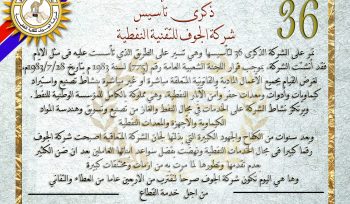 ذكرى تأسيس
36
شركة الجوف للتقنية النفطية
تمر على الشركة الذكرى 36 لتأسيسها وهي تسير على الطريق الذي تأسست عليه في سنوات الأيام
فقد أنشئت الشركة بموجب قرار اللجنة الشعبية العامة رقم (775) لسنة 1983 م بتاريخ 1983/7/28م
لغرض القيام بجميع الأعمال المادية والقانونية المتعلقة مباشرة أو غير مباشرة بنشاط تصنيع واستيراد
كيماويات وأدوات ومعدات حفر وآبار النفط وهي مملوكة بالكامل للمؤسسة الوطنية للنفط
ويرتكز نشاط الشركة على الخدمات في مجال النفط والغاز من تصنيع وتسويق وهندسة المواد
الكيماوية والأجهزة والمعدات النفطية
وبعد سنوات من الكفاح والجهود الكبيرة التي بذلها جاءت الشركة المتعاقبة أصبحت شركة الجوف
رقما كبيرا في مجال الخدمات النفطية ونهضت بفضل سواعد أبنائها العاملين بعد أن ضن الكثير
عدم تقدمها وتطورها لما مرت به من أزمات
وها هي اليوم تكون شركة الجوف صرحا لتقترب من الأربعين عاما من العطاء والتفاني
من أجل خدمة القطاع